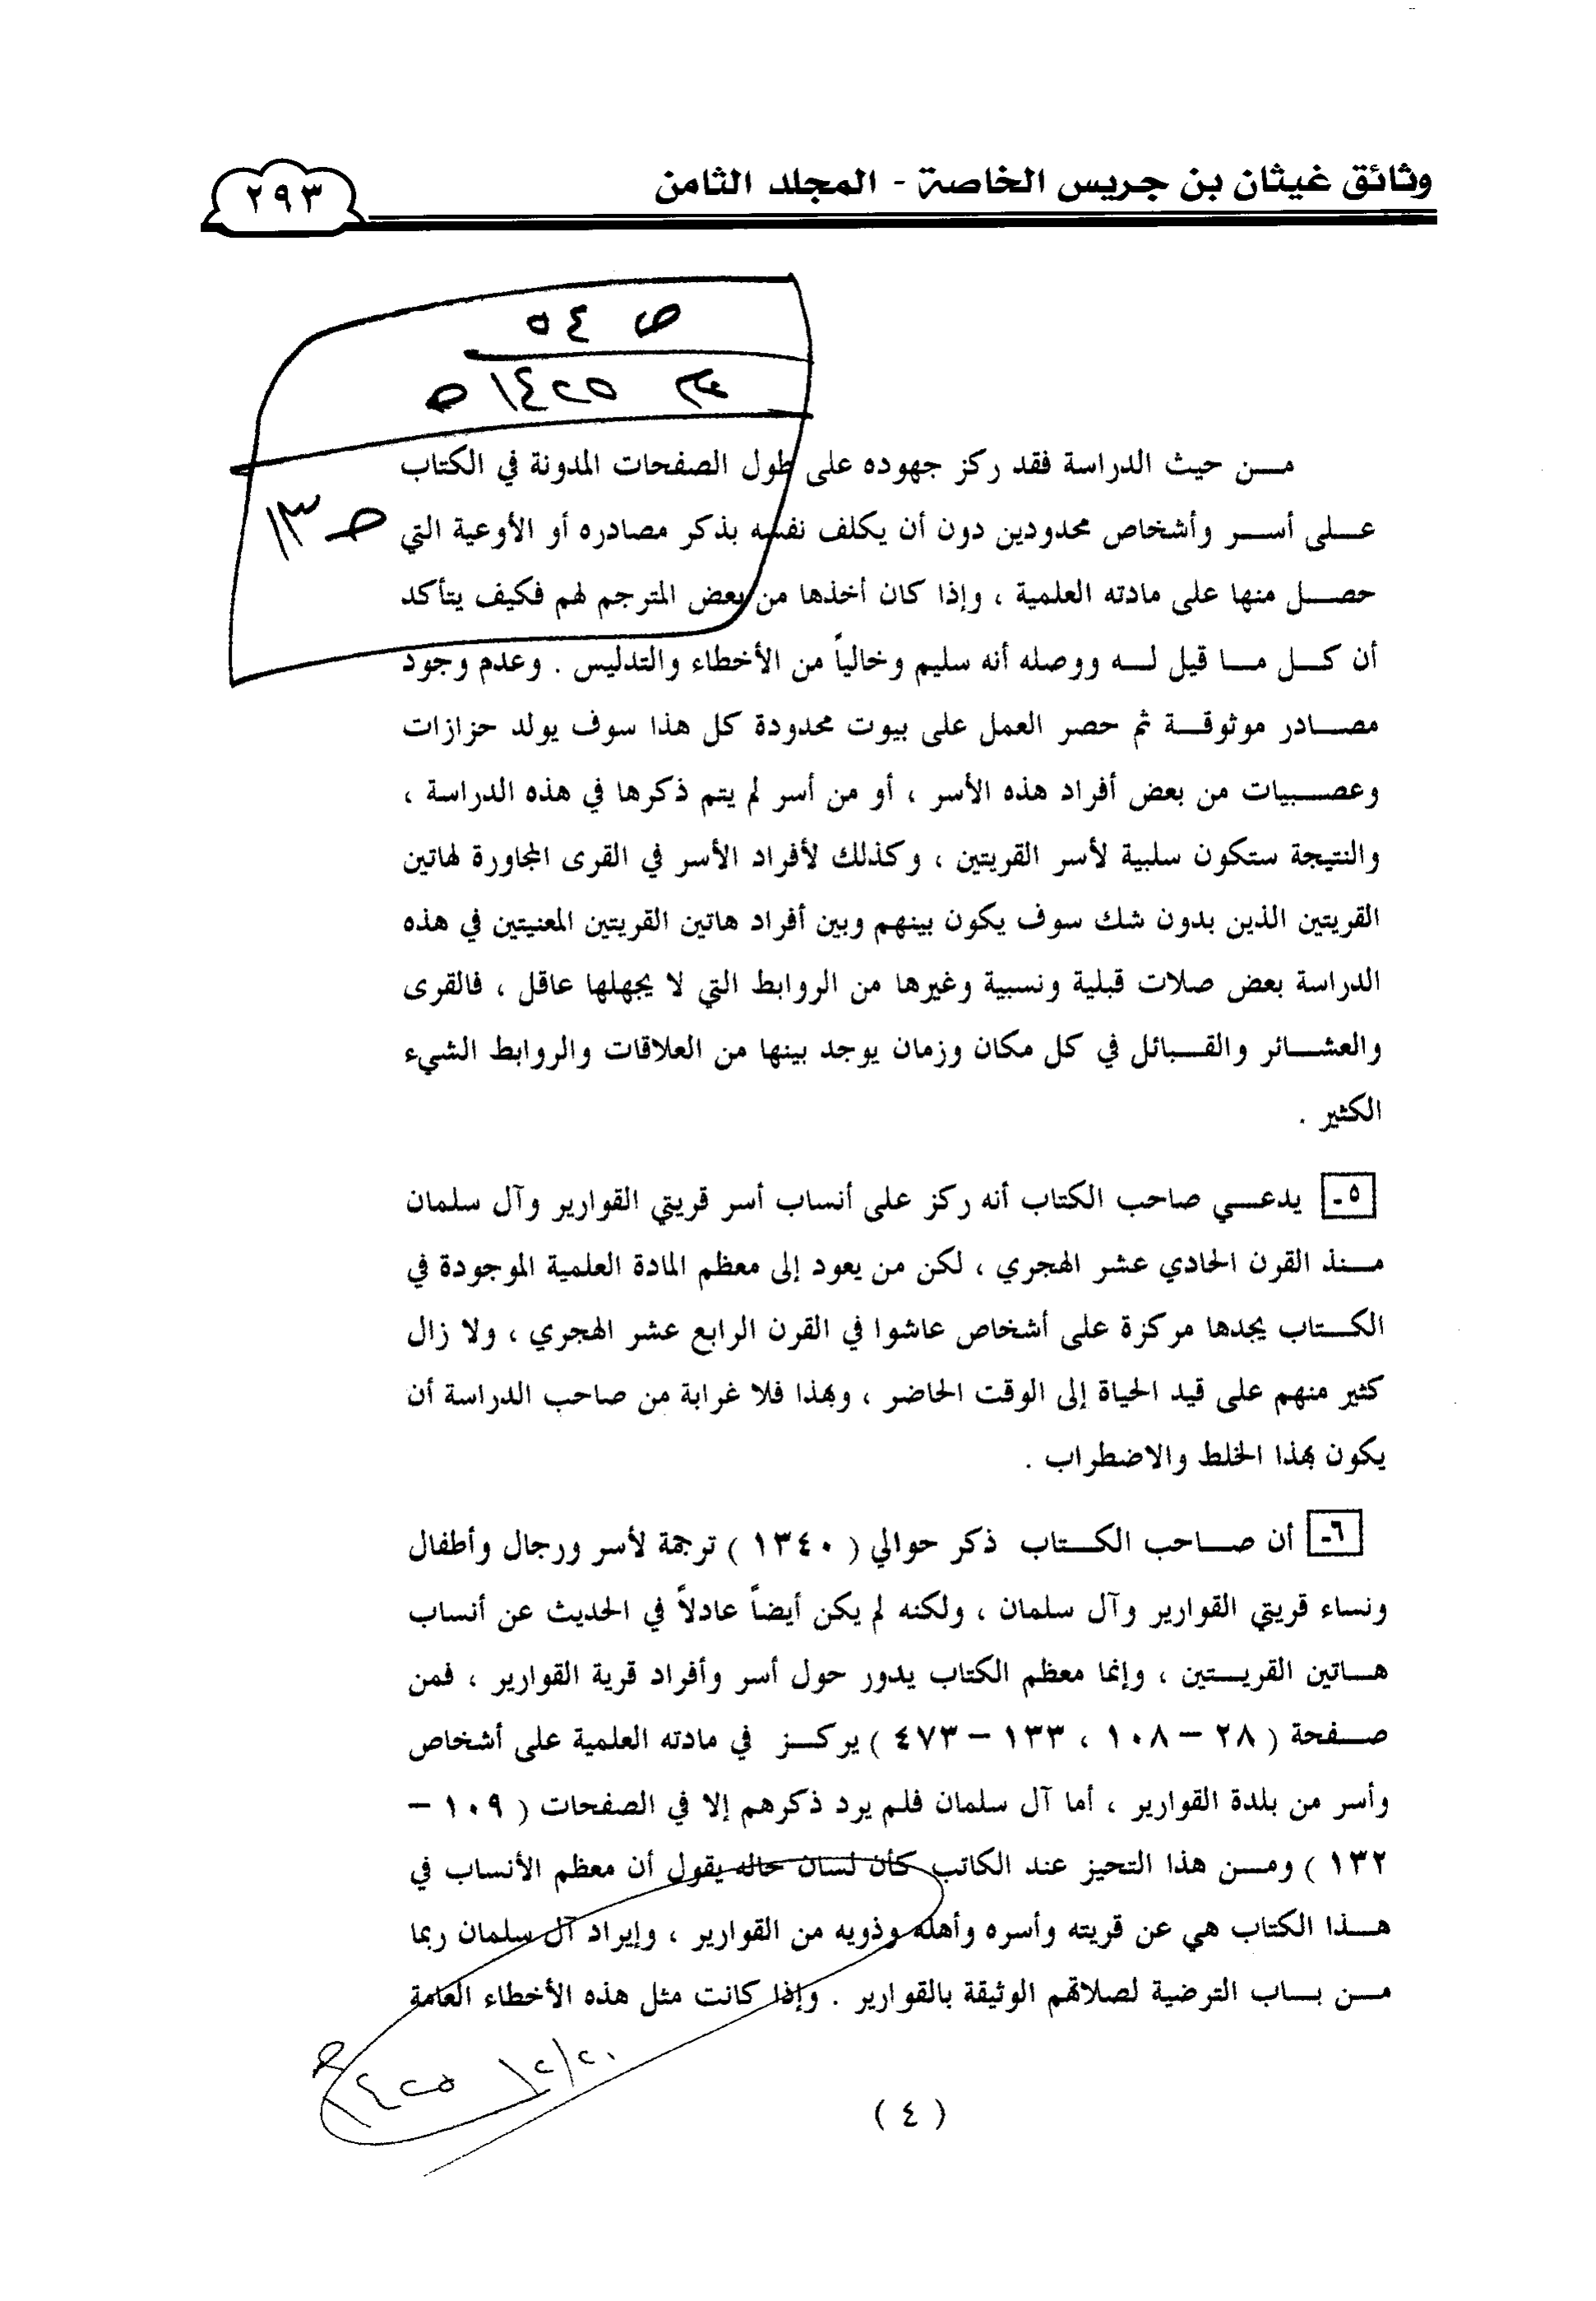 وثائق غيثان بن جريس الخاصة - المجلد الثامن
٢٩٣
ص ٥٤
١٤٢٥ هـ
ص ١٣
مــن حيث الدراسة فقد ركز جهوده على طول الصفحات المدونة في الكتاب
علــى أســر وأشخاص محدودين دون أن يكلف نفسه بذكر مصادره أو الأوعية التي
حصــل منها على مادته العلمية ، وإذا كان أخذها من بعض المترجم لهم فكيف يتأكد
أن كــل مــا قيل لــه ووصله أنه سليم وخالياً من الأخطاء والتدليس . وعدم وجود
مصــادر موثوقــة ثم حصر العمل على بيوت محدودة كل هذا سوف يولد حزازات
وعصــبيات من بعض أفراد هذه الأسر ، أو من أسر لم يتم ذكرها في هذه الدراسة ،
والنتيجة ستكون سلبية لأسر القريتين ، وكذلك لأفراد الأسر في القرى المجاورة لهاتين
القريتين الذين بدون شك سوف يكون بينهم وبين أفراد هاتين القريتين المعنيتين في هذه
الدراسة بعض صلات قبلية ونسبية وغيرها من الروابط التي لا يجهلها عاقل ، فالقرى
والعشــائر والقــبائل في كل مكان وزمان يوجد بينها من العلاقات والروابط الشيء
الكثير .
٥- يدعــي صاحب الكتاب أنه ركز على أنساب أسر قريتي القوارير وآل سلمان
مــنذ القرن الحادي عشر الهجري ، لكن من يعود إلى معظم المادة العلمية الموجودة في
الكــتاب يجدها مركزة على أشخاص عاشوا في القرن الرابع عشر الهجري ، ولا زال
كثير منهم على قيد الحياة إلى الوقت الحاضر ، وبهذا فلا غرابة من صاحب الدراسة أن
يكون بهذا الخلط والاضطراب .
٦- أن صــاحب الكــتاب ذكر حوالي ( ١٣٤٠ ) ترجمة لأسر ورجال وأطفال
ونساء قريتي القوارير وآل سلمان ، ولكنه لم يكن أيضاً عادلاً في الحديث عن أنساب
هــاتين القريــتين ، وإنما معظم الكتاب يدور حول أسر وأفراد قرية القوارير ، فمن
صــفحة ( ٢٨ – ١٠٨ ، ١٣٣ – ٤٧٣ ) يركــز في مادته العلمية على أشخاص
وأسر من بلدة القوارير ، أما آل سلمان فلم يرد ذكرهم إلا في الصفحات ( ١٠٩ –
١٣٢ ) ومــن هذا التحيز عند الكاتب كأن لسان حاله يقول أن معظم الأنساب في
هــذا الكتاب هي عن قريته وأسره وأهله وذويه من القوارير ، وإيراد آل سلمان ربما
مــن بــاب الترضية لصلاتهم الوثيقة بالقوارير . وإذا كانت مثل هذه الأخطاء العامة
١٤٢٥
( ٤ )